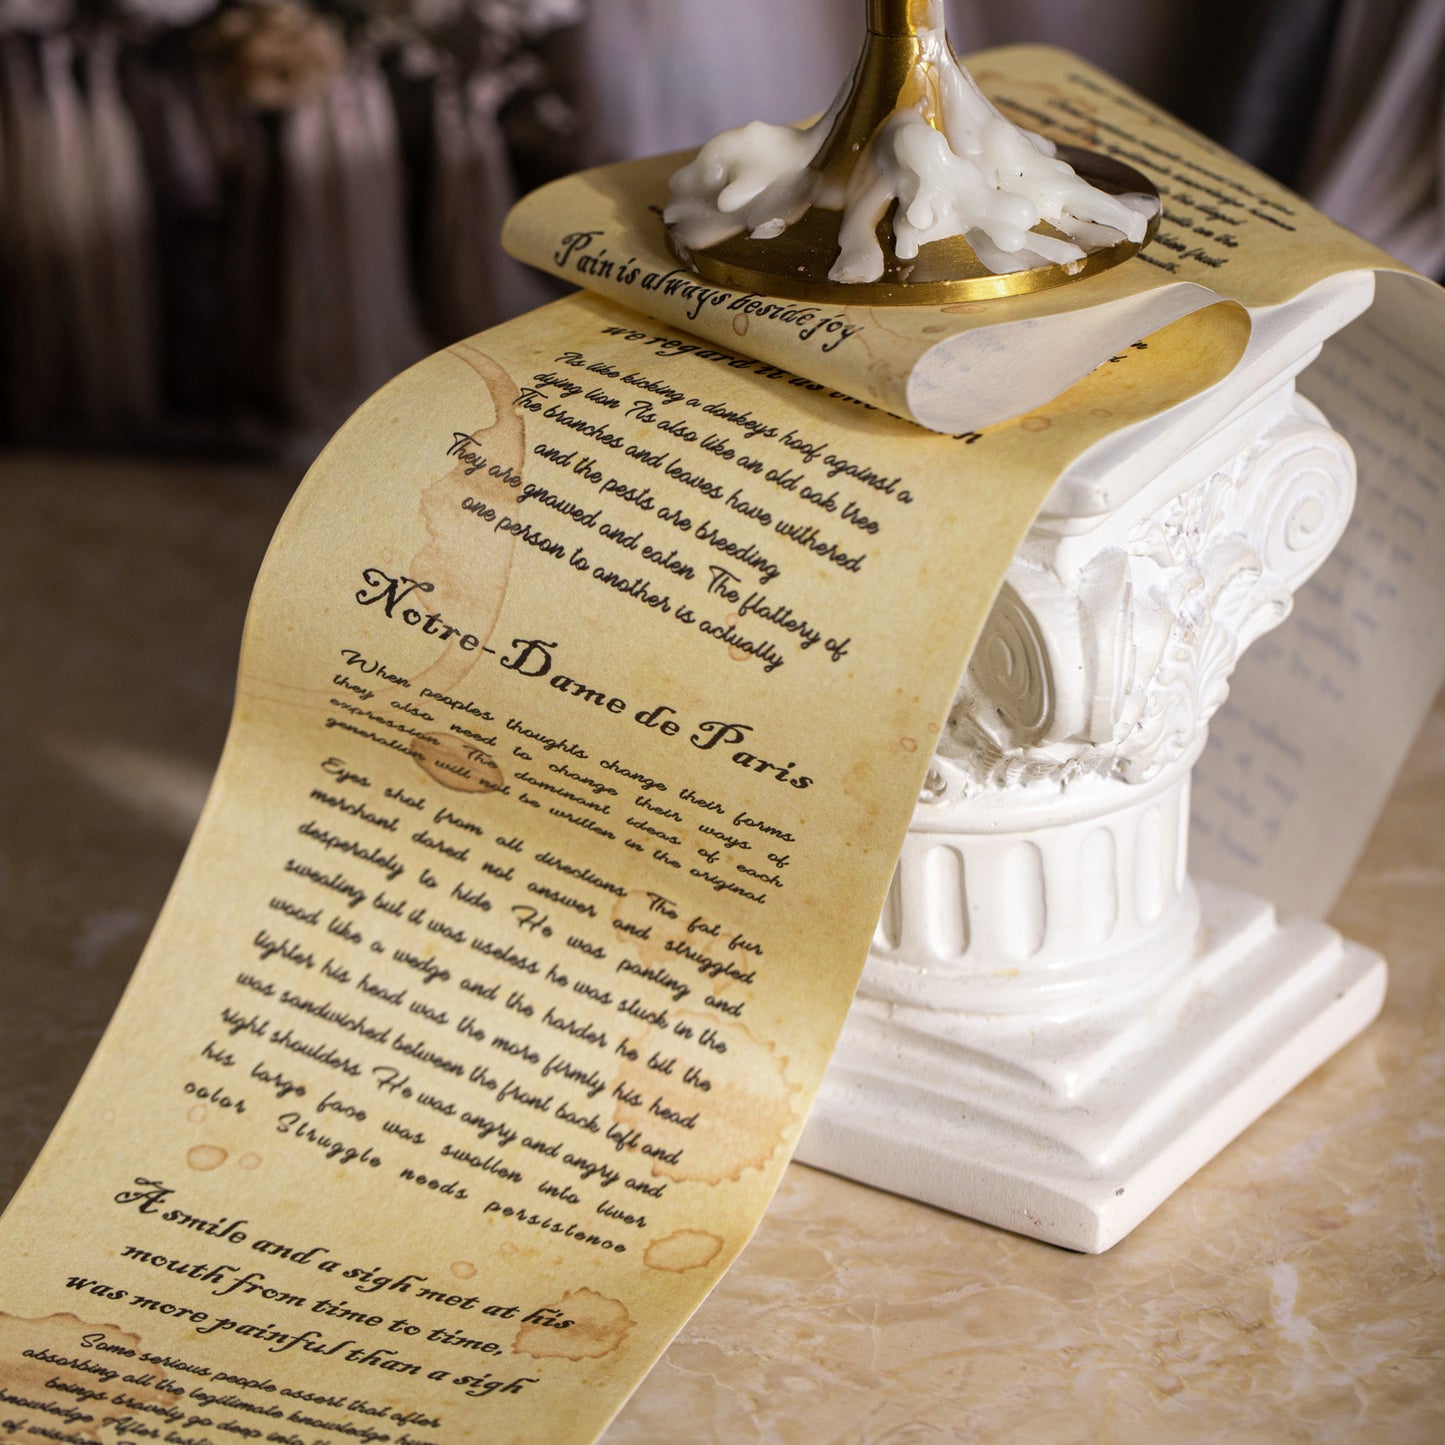 Pain is always beside joy
we regard it as
Tis like kicking a donkeys hoof against a
dying lion Tis also like an old oak tree
The branches and leaves have withered
and the pests are breeding
They are gnawed and eaten The flattery of
one person to another is actually
Notre-Dame de Paris
When peoples thoughts change their forms
they also need to change their ways of
expression The dominant ideas of each
generation will not be written in the original
Eyes shot from all directions The fat fur
merchant dared not answer and struggled
desperately to hide He was panting and
sweating but it was useless he was stuck in the
wood like a wedge and the harder he bit the
tighter his head was the more firmly his head
was sandwiched between the front back left and
right shoulders He was angry and angry and
his large face was swollen into liver
color Struggle needs persistence
A smile and a sigh met at his
mouth from time to time,
was more painful than a sigh
Some serious people assert that after
absorbing all the legitimate knowledge hum
beings bravely go deep into the
knowledge After
of wisdom